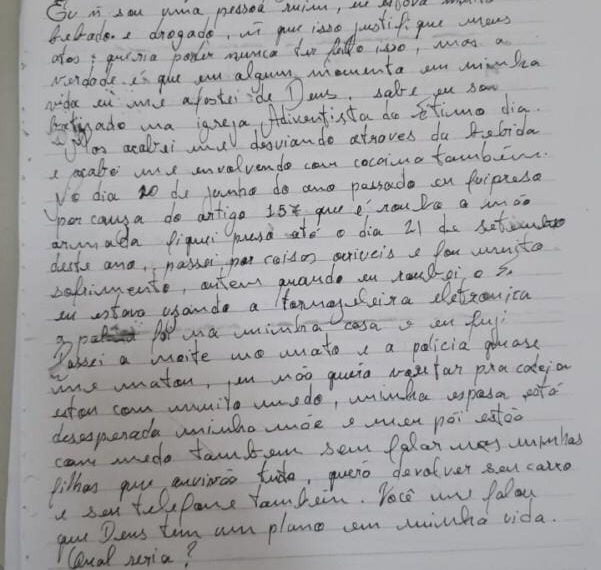 Eu ñ sou uma pessoa ruim, eu estava muito
bebado e drogado, ñ que isso justifique meus
atos; queria poder nunca ter feito isso, mas a
verdade é que em algum momento em minha
vida eu me afastei de Deus, sabe eu sou
batizado na igreja Adventista do Sétimo dia.
Mas acabei me desviando atraves da bebida
e acabei me envolvendo com cocaina também.
No dia 20 de junho do ano passado eu fui preso
por causa do artigo 157 que é roubo a mão
armada fiquei preso até o dia 21 de setembro
deste ano, passei por coisas orriveis e foi muito
sofrimento, ontem quando eu roubei o S.
eu estava usando a tornozeleira eletronica
a foi na minha casa e eu fugi
Passei a noite no mato e a policia quase
me matou, eu não quero voltar pra cadeia
estou com muito medo, minha esposa está
desesperada minha mãe e meu pai estão
com medo tambem sem falar nas minhas
filhas que ouvirão tudo, quero devolver seu carro
e seu telefone também. Você me falou
que Deus tem um plano em minha vida.
Qual seria?